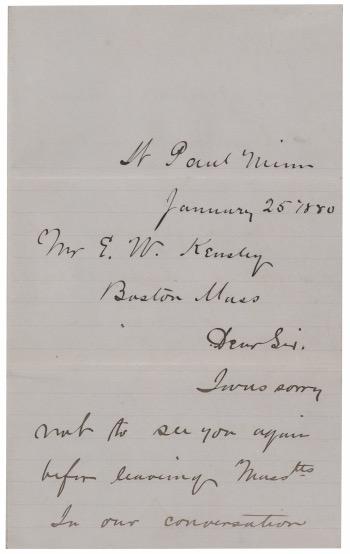 St Paul Minn
January 25 1880
Mr E. W.
Boston Mass
Dear Sir.
I was sorry
not to see you again
before leaving Masstts
In our conversation